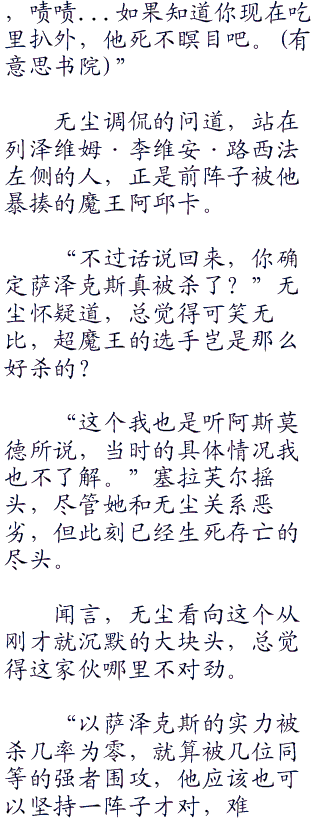 ，啧啧...如果知道你现在吃
里扒外，他死不瞑目吧。(有
意思书院)”
无尘调侃的问道，站在
列泽维姆·李维安·路西法
左侧的人，正是前阵子被他
暴揍的魔王阿邱卡。
“不过话说回来，你确
定萨泽克斯真被杀了？”无
尘怀疑道，总觉得可笑无
比，超魔王的选手岂是那么
好杀的？
“这个我也是听阿斯莫
德所说，当时的具体情况我
也不了解。”塞拉芙尔摇
头，尽管她和无尘关系恶
劣，但此刻已经生死存亡的
尽头。
闻言，无尘看向这个从
刚才就沉默的大块头，总觉
得这家伙哪里不对劲。
“以萨泽克斯的实力被
杀几率为零，就算被几位同
等的强者围攻，他应该也可
以坚持一阵子才对，难